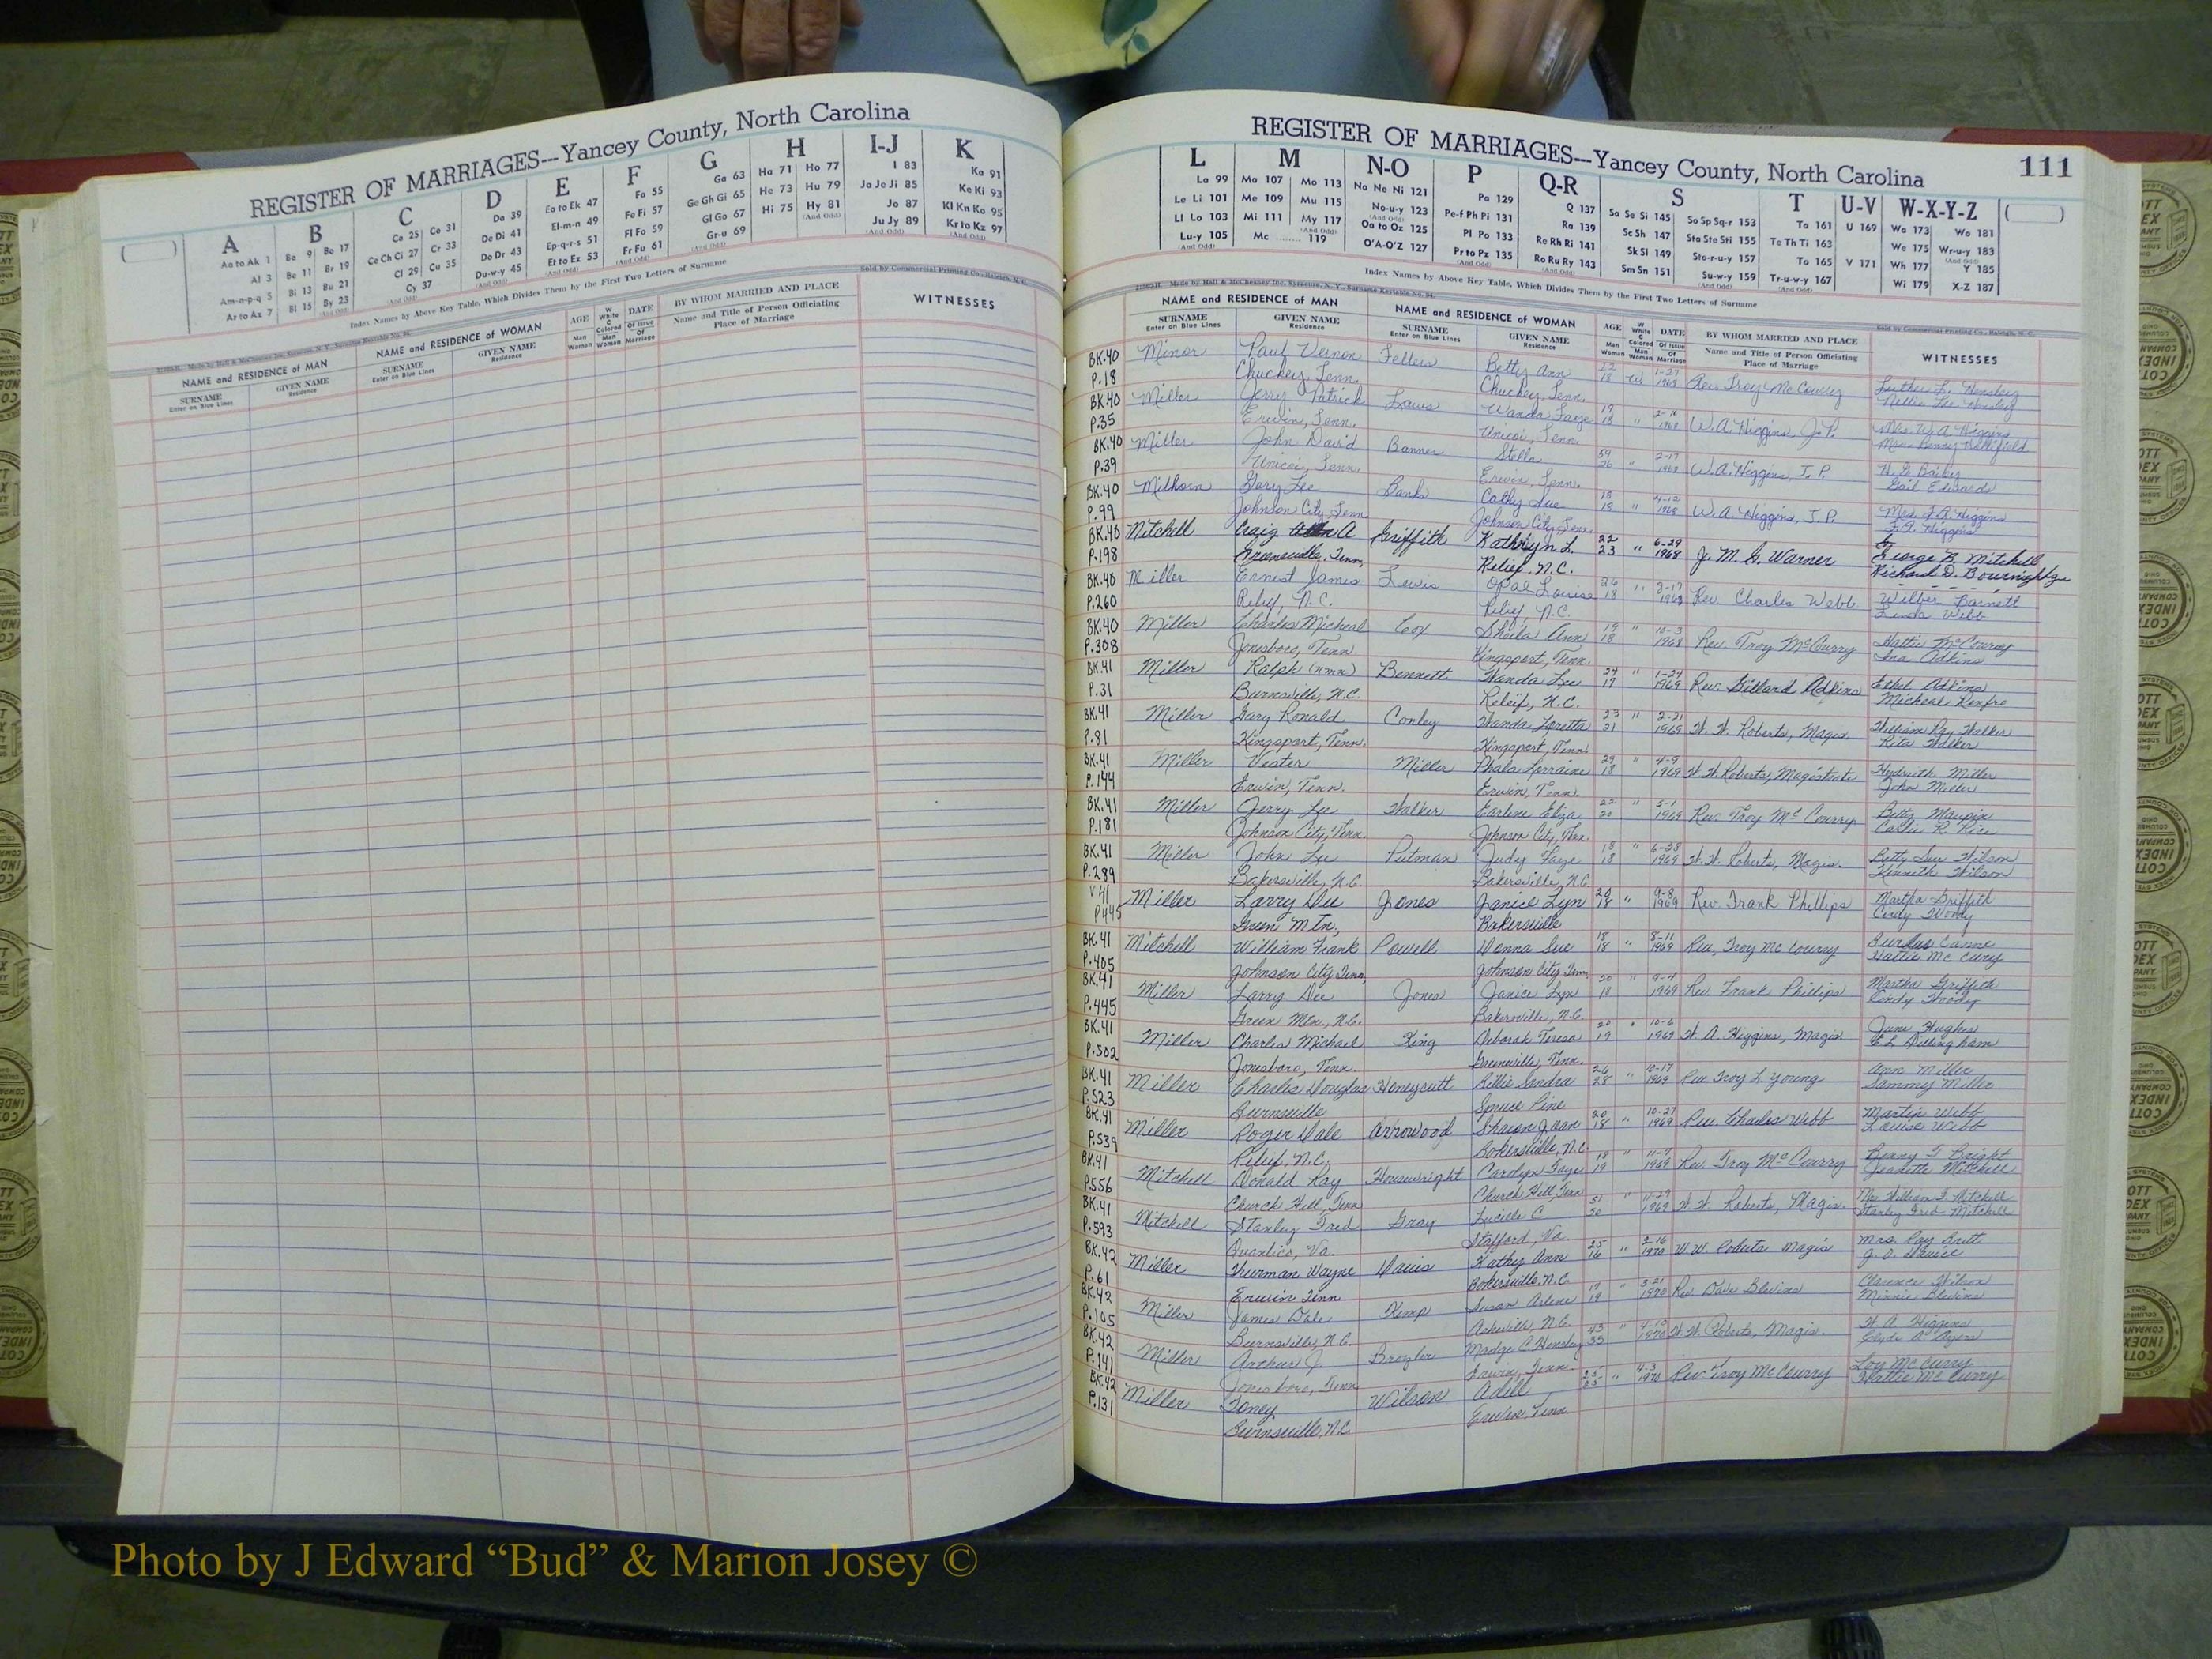 REGISTER OF MARRIAGES---Yancey County, North Carolina
A B C D E F G H I-J K
Aa to Ak 1 Ba 9 Bo 17 Ca 25 Co 31 Da 39 Ea to Ek 47 Fa 55 Ga 63 Ha 71 Ho 77 I 83 Ka 91
Al 3 Be 11 Br 19 Ce Ch Ci 27 Cr 33 De Di 41 El-m-n 49 Fe Fi 57 Ge Gh Gi 65 He 73 Hu 79 Ja Je Ji 85 Ke Ki 93
Am-n-p-q 5 Bi 13 Bu 21 Cl 29 Cu 35 Do Dr 43 Ep-q-r-s 51 Fl Fo 59 Gl Go 67 Hi 75 Hy 81 Jo 87 Kl Kn Ko 95
Ar to Az 7 Bl 15 By 23 Cy 37 Du-w-y 45 Et to Ez 53 Fr Fu 61 Gr-u 69 (And Odd) Ju Jy 89 Kr to Kz 97
Index Names by Above Key Table, Which Divides Them by the First Two Letters of Surname
Sold by Commercial Printing Co., Raleigh, N. C.
NAME and RESIDENCE of MAN NAME and RESIDENCE of WOMAN AGE DATE BY WHOM MARRIED AND PLACE WITNESSES
SURNAME Enter on Blue Lines GIVEN NAME Residence SURNAME Enter on Blue Lines GIVEN NAME Residence Man Woman W White C Colored Man Woman Of Issue Of Marriage Name and Title of Person Officiating Place of Marriage
REGISTER OF MARRIAGES---Yancey County, North Carolina 111
L M N-O P Q-R S T U-V W-X-Y-Z
La 99 Ma 107 Mo 113 Na Ne Ni 121 Pa 129 Q 137 Sa Se Si 145 So Sp Sq-r 153 Ta 161 U 169 Wa 173 Wo 181
Le Li 101 Me 109 Mu 115 No-u-y 123 Pe-f Ph Pi 131 Ra 139 Sc Sh 147 Sta Ste Sti 155 Te Th Ti 163 We 175 Wr-u-y 183
Ll Lo 103 Mi 111 My 117 Oa to Oz 125 Pl Po 133 Re Rh Ri 141 Sk Sl 149 Sto-r-u-y 157 To 165 V 171 Wh 177 Y 185
Lu-y 105 Mc 119 O'A-O'Z 127 Pr to Pz 135 Ro Ru Ry 143 Sm Sn 151 Su-w-y 159 Tr-u-w-y 167 Wi 179 X-Z 187
Index Names by Above Key Table, Which Divides Them by the First Two Letters of Surname
21865-H Made by Hall & McChesney Inc., Syracuse, N. Y., Surname Keytable No. 94. Sold by Commercial Printing Co., Raleigh, N. C.
NAME and RESIDENCE of MAN NAME and RESIDENCE of WOMAN AGE DATE BY WHOM MARRIED AND PLACE WITNESSES
SURNAME Enter on Blue Lines GIVEN NAME Residence SURNAME Enter on Blue Lines GIVEN NAME Residence Man Woman W White C Colored Man Woman Of Issue Of Marriage Name and Title of Person Officiating Place of Marriage
BK.40 Minor Paul Vernon Fellers Betty Ann 22 1-27
P.18 Chuckey, Tenn. Chuckey, Tenn. 18 W 1968 Rev. Troy McCourry
BK.40 Miller Jerry Patrick Laws Wanda Faye 19 2-16
P.35 Erwin, Tenn. Unicoi, Tenn. 18 " 1968 W.A. Higgins, J.P. Mrs. W.A. Higgins
BK.40 Miller John David Banner Stella 59 2-17
P.39 Unicoi, Tenn. Erwin, Tenn. 26 " 1968 W.A. Higgins, J.P. Gail Edwards
BK.40 Milhorn Gary Lee Banks Cathy Sue 18 4-12
P.99 Johnson City, Tenn. Johnson City, Tenn. 18 " 1968 W.A. Higgins, J.P. Mrs. F.A. Higgins F.A. Higgins
BK.40 Mitchell Craig A Griffith Kathryn L. 22 6-29
P.198 Greeneville, Tenn. Relief, N.C. 23 " 1968 J. M. A. Warner George B. Mitchell
BK.40 Miller Ernest James Lewis Opal Louise 26 8-17
P.260 Relief, N.C. Relief, N.C. 18 " 1968 Rev. Charles Webb Wilber Barnett Linda Webb
BK.40 Miller Charles Micheal Cox Sheila Ann 19 10-3
P.308 Jonesboro, Tenn Kingsport, Tenn. 18 " 1968 Rev. Troy McCurry Hattie McCurry Ina Adkins
BK.41 Miller Ralph (nmn) Bennett Wanda Lee 24 1-24
P.31 Burnsville, N.C. Releif, N.C. 17 " 1969 Rev. Dillard Adkins Ethel Adkins Micheal Renfro
BK.41 Miller Gary Ronald Conley Wanda Loretta 23 2-21
P.81 Kingsport, Tenn. Kingsport, Tenn. 21 " 1969 W. W. Roberts, Magis. William Ray Walker Rita Walker
BK.41 Miller Vester Miller Phala Lorraine 29 4-9
P.144 Erwin, Tenn. Erwin, Tenn. 18 " 1969 W.W. Roberts, Magistrate John Miller
BK.41 Miller Jerry Lee Walker Earlene Eliza 22 5-1
P.181 Johnson City, Tenn. Johnson City, Tenn. 20 " 1969 Rev. Troy McCourry Betty Maupin
BK.41 Miller John Lee Putman Judy Faye 18 6-28
P.289 Bakersville, N.C. Bakersville, N.C. 18 " 1969 W.W. Roberts, Magis. Betty Sue Wilson Kenneth Wilson
V41 Miller Larry Dee Jones Janice Lyn 20 9-8
P445 Green Mtn, Bakersville 18 " 1969 Rev. Frank Phillips Martha Griffith Cindy Woody
BK.41 Mitchell William Frank Powell Donna Sue 18 8-11
P.405 Johnson City Tenn, Johnson City Tenn, 18 " 1969 Rev, Troy McCourry Hattie McCury
BK.41 Miller Larry Dee Jones Janice Lyn 20 9-4
P.445 Green Mtn., N.C. Bakersville, N.C. 18 " 1969 Rev. Frank Phillips Martha Griffith Cindy Woody
BK.41 Miller Charles Michael King Deborah Teresa 20 10-6
P.502 Jonesboro, Tenn. Greeneville, Tenn. 19 " 1969 W. A. Higgins, Magis. June Hughes E.L. Dillingham
BK.41 Miller Charles Douglas Honeycutt Billie Sandra 26 10-17
P.523 Burnsville Spruce Pine 28 " 1969 Rev Troy L Young Ann Miller Sammy Miller
BK.41 Miller Roger Dale Arrowood Sharon Jean 20 10-27
P.539 Relief, N.C. Bakersville, N.C. 18 " 1969 Rev. Charles Webb Martin Webb Louise Webb
BK.41 Mitchell Donald Ray Housewright Carolyn Faye 18 11-7
P.556 Church Hill, Tenn Church Hill, Tenn 19 " 1969 Rev. Troy McCourry Jeanette Mitchell
BK.41 Mitchell Stanley Fred Gray Lucille C 51 11-29
P.593 Quantico, Va. Stafford, Va. 50 " 1969 W. W. Roberts, Magis. Mrs. William F. Mitchell Stanley Fred Mitchell
BK.42 Miller Thurman Wayne Davis Kathy Ann 25 2-16
P.61 Erwin Tenn Bakersville, N.C. 16 " 1970 W.W. Roberts Magis
BK.42 Miller James Dale Kemp Susan Arlene 19 3-21
P.105 Burnsville, N.C. Asheville, N.C. 19 " 1970 Rev. Dave Blevins Clarence Wilson Minnie Blevins
BK.42 Miller Arthur J. Broyler Madge C Hensley 43 4-10
P.141 Jonesboro, Tenn Erwin, Tenn. 35 " 1970 W.W. Roberts, Magis. W. A. Higgins Clyde A. Ayers
BK.42 Miller Toney Wilson Adell 25 4-3
P.131 Burnsville, N.C. Erwin, Tenn. 25 " 1970 Rev. Troy McCurry Loy McCurry Hattie McCurry
Photo by J Edward “Bud” & Marion Josey ©